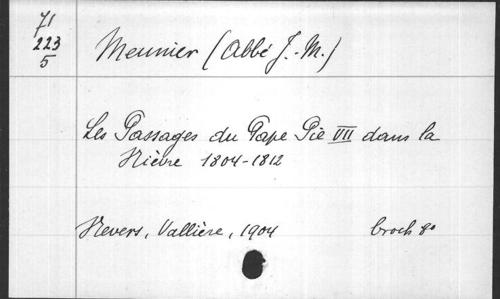 71
223
5
Meunier (Abbé J.-M.)
Les Passages du Pape Pie VII dans la
Nièvre 1804-1812
Nevers, Vallière, 1904 broch 8o